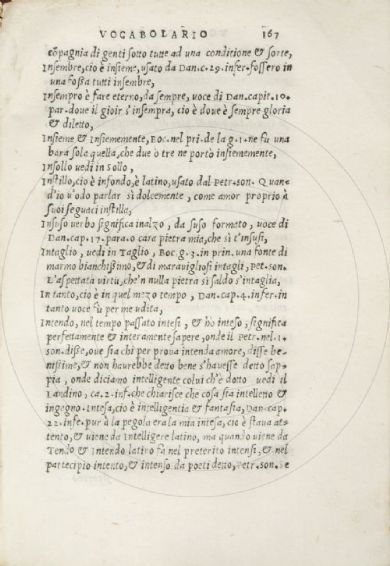 VOCABOLARIO 167
cõpagnia di genti sotto tutte ad una conditione & sorte,
Insembre, cio è insieme, usato da Dan. c. 29. infer. fossero in
una fossa tutti insembre,
Insempro è fare eterno, da sempre, voce di Dan. capit. 10.
par. doue il gioir s'insempra, cio è doue è sempre gloria
& diletto,
Insieme & Insiememente, Boc. nel pri. de la g. 1. ne fu una
bara sola quella, che due o tre ne portò insiememente,
Insollo uedi in Sollo,
Instillo, cio è infondo, è latino, usato dal Petr. son. Quan-
d'io u'odo parlar si dolcemente, come amor proprio à
suoi seguaci instilla,
Insuso uerbo significa inalzo, da suso formato, uoce di
Dan. cap. 17. para. o cara pietra mia, che si t'insusi,
Intaglio, uedi in Taglio, Boc. g. 3. in prin. una fonte di
marmo bianchissimo, & di marauigliosi intagli, Pet. son.
L'aspettata uirtu, che'n nulla pietra si saldo s'intaglia,
In tanto, cio è in quel mezo tempo, Dan. cap. 4. infer. in
tanto uoce fù per me udita,
Intendo, nel tempo passato intesi, & hò inteso, significa
perfettamente & interamente sapere, onde il Petr. nel. 1.
son. disse, oue sia chi per proua intenda amore, disse be-
nissimo, & non haurebbe detto bene s'hauesse detto sap-
pia, onde diciamo intelligente colui ch'è dotto uedi il
Landino, ca. 2. inf. che chiarisce che cosa sia intelletto &
ingegno. Intesa, cio è intelligentia & fantasia, Dan. cap.
22. infe. pur à la pegola era la mia intesa, cio è staua at-
tento, & uiene da Intelligere latino, ma quando uiene da
Tendo & Intendo latino fà nel preterito intensi, & nel
partecipio intento, & intenso da poeti detto, Petr. son. Se